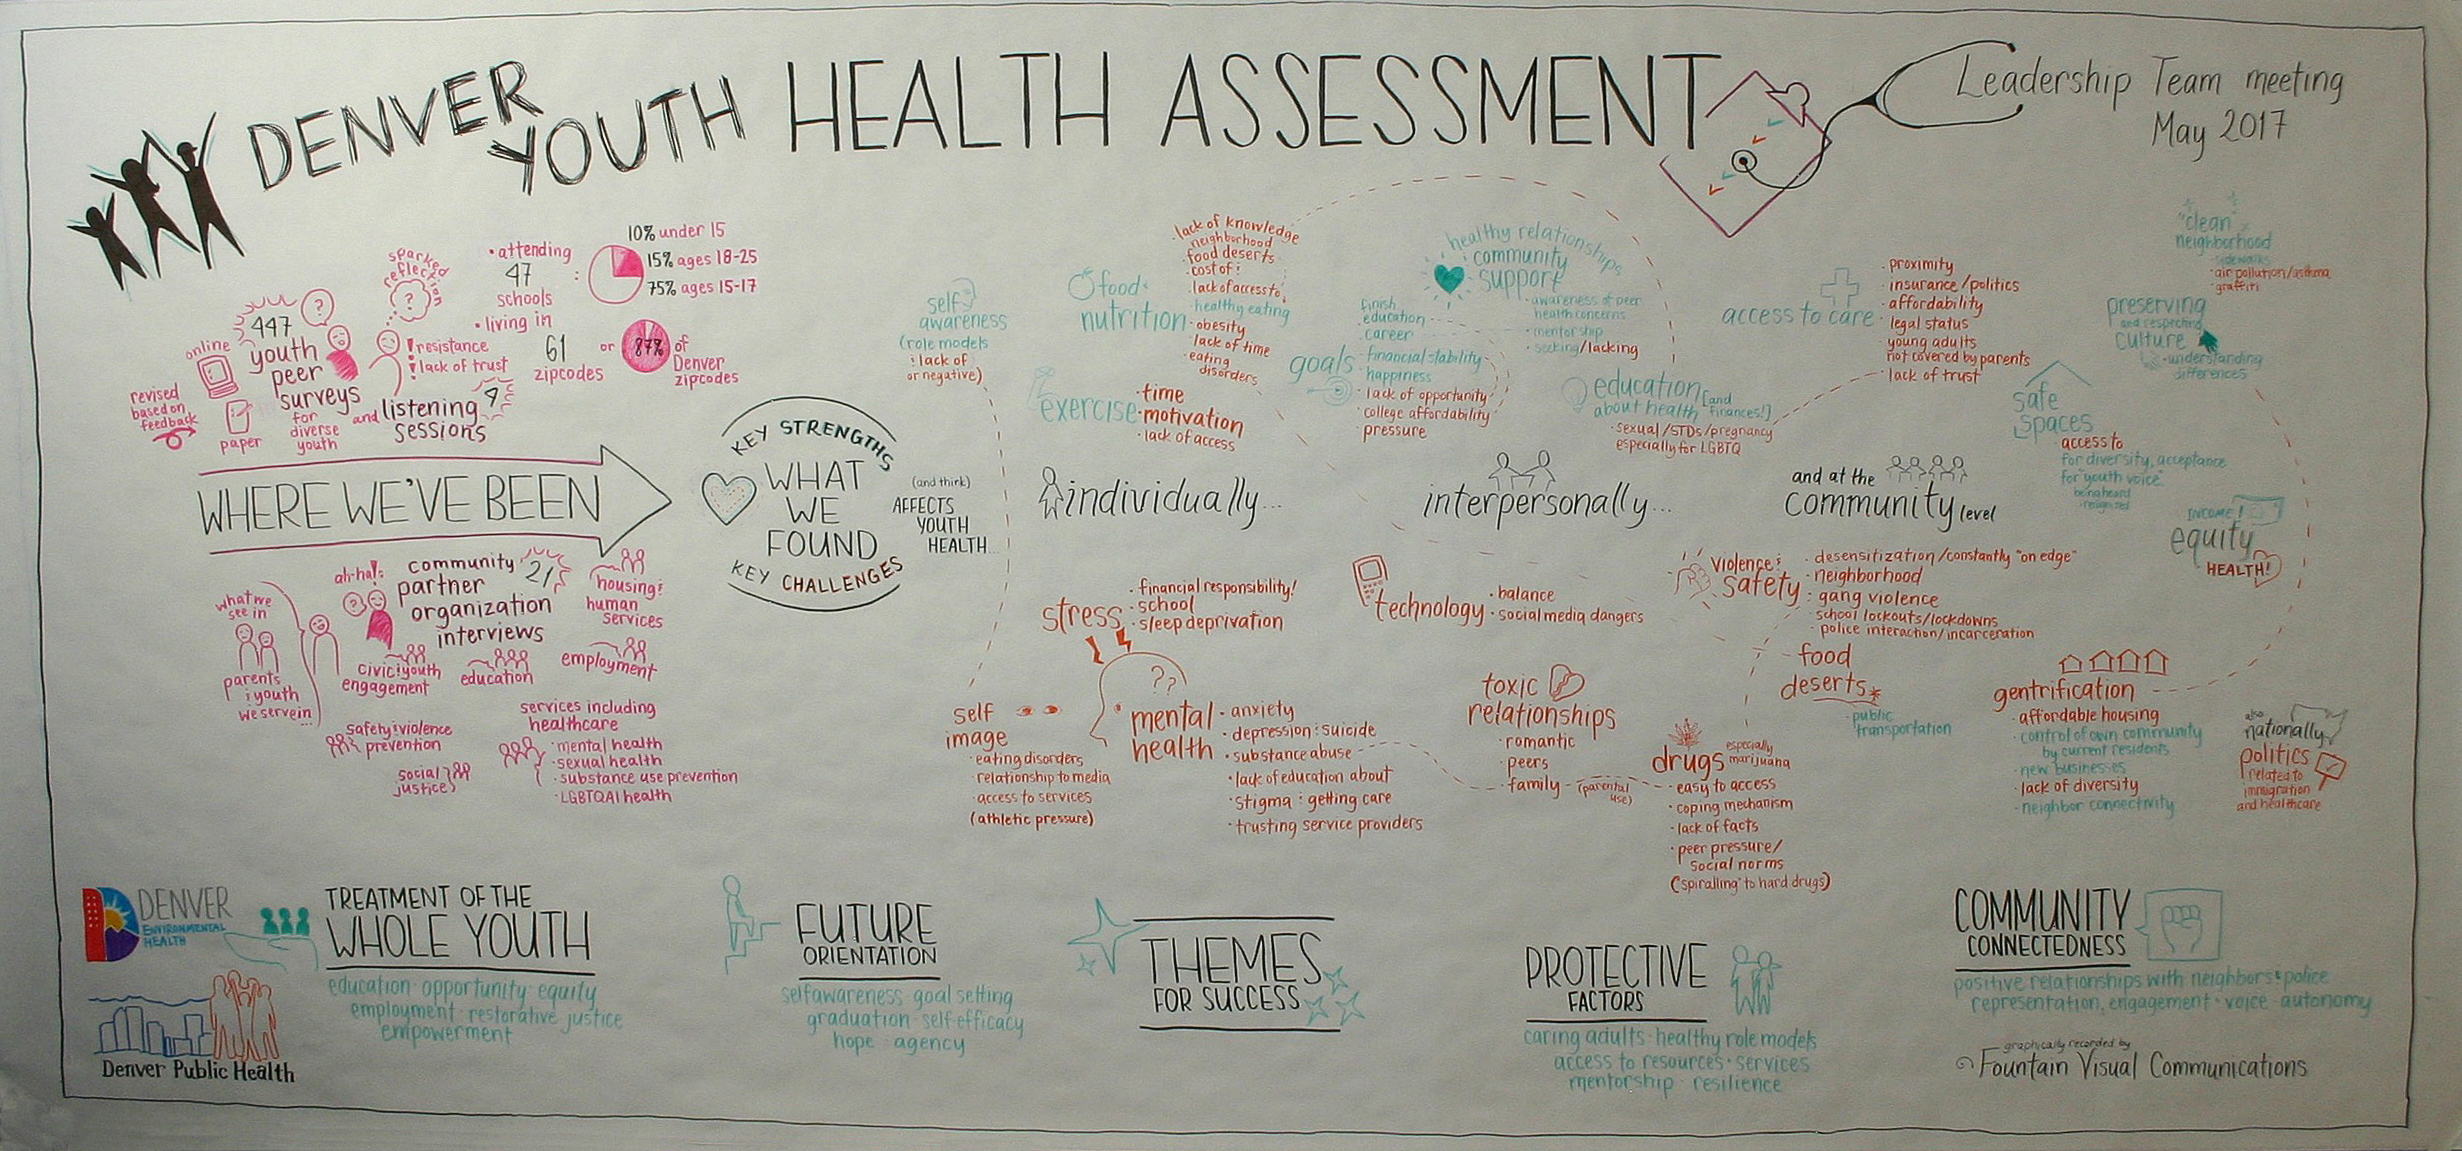 DENVER
YOUTH HEALTH ASSESSMENT
Leadership Team meeting
May 2017
447
youth
peer
surveys
for
diverse
youth
online
revised
based on
feedback
paper
sparked
reflection
?
?
! resistance
! lack of trust
and listening
sessions
9
• attending
47
schools
:
10% under 15
15% ages 18-25
75% ages 15-17
• living in
61
zipcodes
or
87% of
Denver
zipcodes
WHERE WE'VE BEEN
what we
see in
parents
& youth
we serve in...
ah-ha!s
?
community
partner
organization
interviews
21
housing &
human
services
civic & youth
engagement
education
employment
safety & violence
prevention
social
justice
services including
healthcare
· mental health
· sexual health
· substance use prevention
· LGBTQAI health
KEY STRENGTHS
WHAT
WE
FOUND
KEY CHALLENGES
(and think)
AFFECTS
YOUTH
HEALTH...
self
awareness
(role models
& lack of
or negative)
food &
nutrition
· lack of knowledge
neighborhood
· food deserts
· cost of &
· lack of access to
healthy eating
· obesity
· lack of time
· eating
disorders
exercise
· time
· motivation
· lack of access
individually...
healthy relationships
community
support
· awareness of peer
health concerns
· mentorship
· seeking/lacking
goals
finish
education
career
· financial stability
· happiness
· lack of opportunity
· college affordability
pressure
education [and
about health finances!]
· sexual/STDs/pregnancy
especially for LGBTQ
interpersonally...
access to care
· proximity
· insurance/politics
· affordability
· legal status
· young adults
not covered by parents
· lack of trust
and at the
community level
"clean"
neighborhood
· sidewalks
· air pollution/asthma
· graffiti
preserving
and respecting
culture
· understanding
differences
safe
spaces
· access to
for diversity, acceptance
for "youth voice"
being heard
· recognized
INCOME!
equity
HEALTH!
stress
· financial responsibility!
· school
· sleep deprivation
self
image
· eating disorders
· relationship to media
· access to services
(athletic pressure)
??
mental
health
· anxiety
· depression & suicide
· substance abuse
· lack of education about
· stigma & getting care
· trusting service providers
technology
· balance
· social media dangers
toxic
relationships
· romantic
· peers
· family
(parental
use)
drugs
especially
marijuana
· easy to access
· coping mechanism
· lack of facts
· peer pressure/
social norms
("spiralling" to hard drugs)
violence &
safety
· desensitization/constantly "on edge"
· neighborhood
· gang violence
school lockouts/lockdowns
· police interaction/incarceration
food
deserts*
· public
transportation
gentrification
· affordable housing
· control of own community
by current residents
· new businesses
· lack of diversity
· neighbor connectivity
also
nationally
politics
related to
immigration
and healthcare
DENVER
ENVIRONMENTAL
HEALTH
Denver Public Health
TREATMENT OF THE
WHOLE YOUTH
education · opportunity · equity
employment · restorative justice
empowerment
FUTURE
ORIENTATION
self awareness goal setting
graduation · self-efficacy
hope · agency
THEMES
FOR SUCCESS
PROTECTIVE
FACTORS
caring adults · healthy role models
access to resources · services
mentorship · resilience
COMMUNITY
CONNECTEDNESS
positive relationships with neighbors & police
representation, engagement · voice · autonomy
graphically recorded by
Fountain Visual Communications